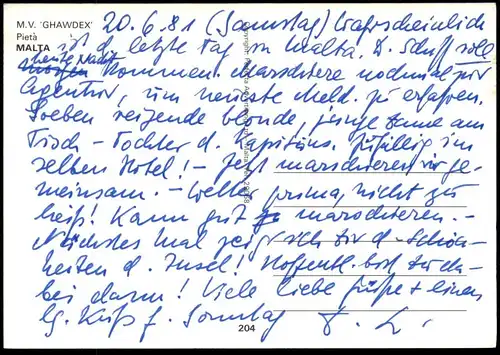 M.V. 'GHAWDEX'
Pietà
MALTA
20.6.81 (Samstag) Wahrscheinlich
ist d. letzte Tag in Malta. D. Schiff soll
heute Nacht kommen. Marschiere nochmal zur
Agentur, um neueste Meld. zu erfahren.
Soeben reizende blonde, junge Dame am
Tisch - Tochter d. Kapitäns. Zufällig im
selben Hotel! - Jetzt marschieren wir ge-
meinsam. - Wetter prima, nicht zu
heiß! Kann gut marschieren. -
Nächstes Mal zeig ich dir d. Schön-
heiten d. Insel! Hoffentl. bist du da-
bei dann! Viele liebe Grüße + einen
lg. Kuß f. Sonntag
204